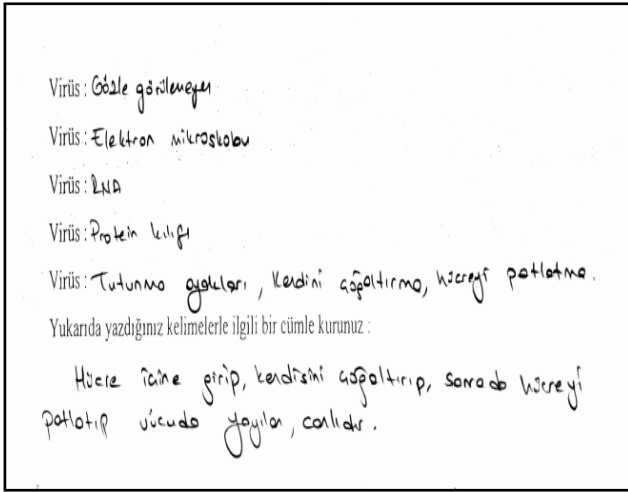 Virüs : Gözle görülemeyen
Virüs : Elektron mikroskobu
Virüs : RNA
Virüs : Protein kılıfı
Virüs : Tutunma ayakları, Kendini çoğaltırma, hücreyi patlatma.
Yukarıda yazdığınız kelimelerle ilgili bir cümle kurunuz :
Hücre içine girip, kendisini çoğaltırıp, sonrada hücreyi
patlatıp vücuda yayılan, canlıdır.